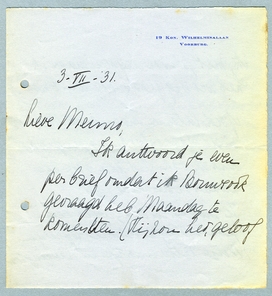 19 Kon. Wilhelminalaan
Voorburg.
3-VII-'31.
Lieve Menno,
Ik antwoord je even
per brief omdat ik Bouw ook
gevraagd heb Maandag te
komen eten. (Hij kon niet, geloof